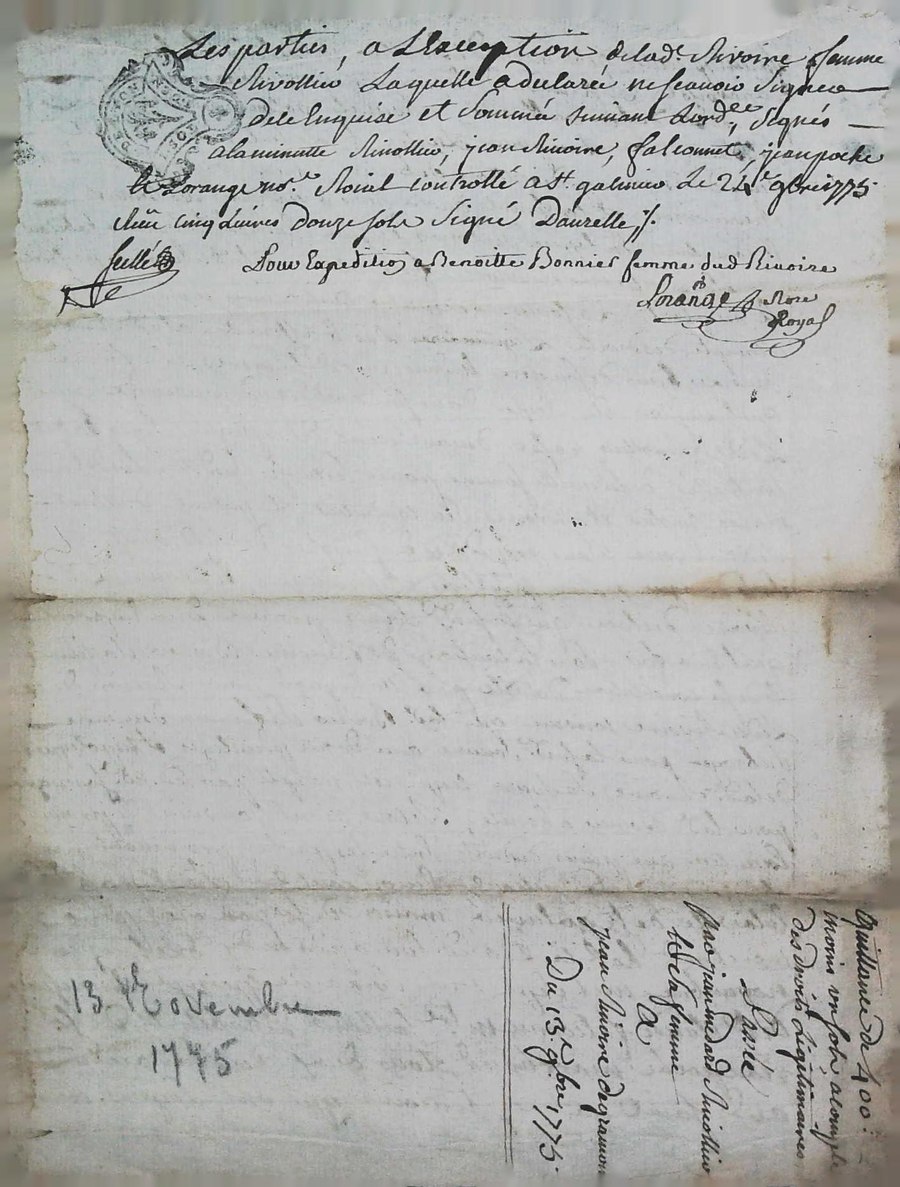 Les parties, a L'Exception de lad.e Rivoire femme
Rivollier Laquelle a declaré ne scavoir Signer
de ce Enquise et Sommée suivant Lord.ce, Signés
a la minutte Rivollier, jean Rivoire, falconnet, jean poche
et Lorange no.re Roial controllé a St. galmier Le 24.e 9bre 1775
Reçu cinq Livres douze sols Signé Daurelle ./.
scellé
Pour Expedition a Benoitte Bonnier femme dud Rivoire
Lorange
Nore
Royal
Quittance de 400.#
moins un sols, a compte
des droits Légitimaires
Passée
par jean medard Rivollier
et Sa femme
A
jean Rivoire de gramon
Du 13.e 9.bre 1775
13. Novembre
1775